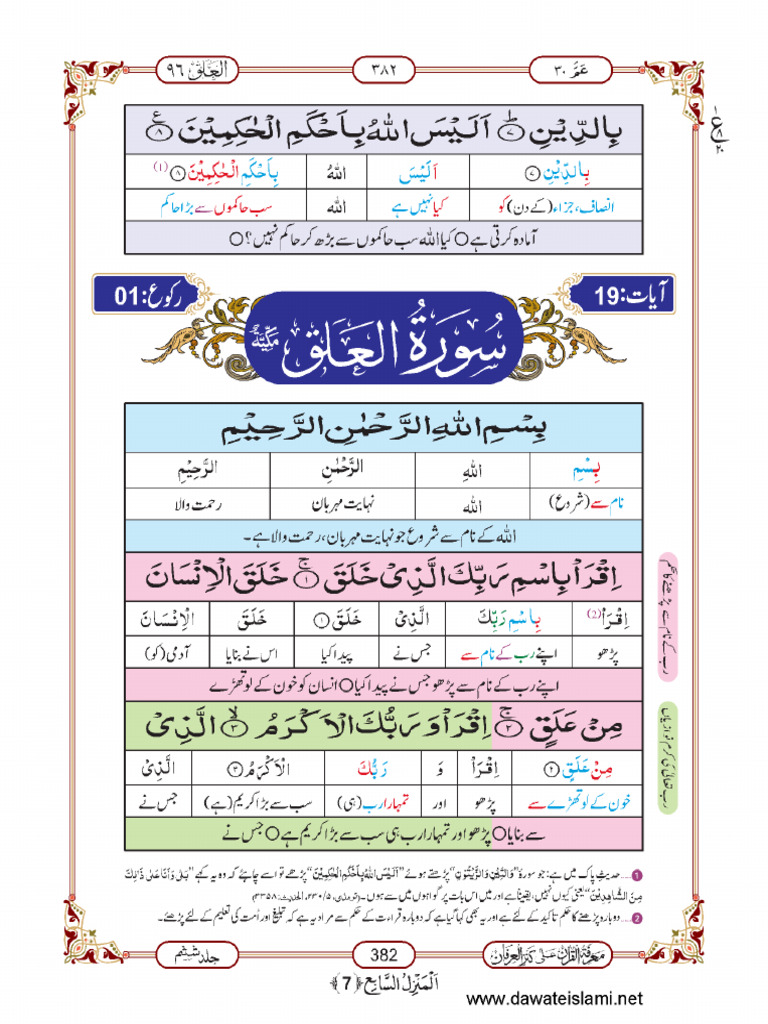 عَمَّ ۳۰
۳۸۲
العلق ۹۶
بِالدِّيْنِؕ۝۷ اَلَيْسَ اللّٰهُ بِاَحْكَمِ الْحٰكِمِيْنَ۠۝۸
بِالدِّيْنِ۝۷ اَلَيْسَ اللّٰهُ بِاَحْكَمِ الْحٰكِمِيْنَ۝۸ (1)
انصاف، جزاء (کے دن) کو کیا نہیں ہے اللّٰه سب حاکموں سے بڑا حاکم
آمادہ کرتی ہے○ کیا اللّٰه سب حاکموں سے بڑھ کر حاکم نہیں؟○
آیات:19
رکوع:01
سُوْرَةُ الْعَلَق مَكِّيَّةٌ
بِسْمِ اللّٰهِ الرَّحْمٰنِ الرَّحِيْمِ
بِسْمِ اللّٰهِ الرَّحْمٰنِ الرَّحِيْمِ
نام سے (شروع) اللّٰه نہایت مہربان رحمت والا
اللّٰه کے نام سے شروع جو نہایت مہربان، رحمت والا ہے۔
اِقْرَاْ بِاسْمِ رَبِّكَ الَّذِيْ خَلَقَۚ۝۱ خَلَقَ الْاِنْسَانَ
اِقْرَاْ (2) بِاسْمِ رَبِّكَ الَّذِيْ خَلَقَ۝۱ خَلَقَ الْاِنْسَانَ
پڑھو اپنے رب کے نام سے جس نے پیدا کیا اس نے بنایا آدمی (کو)
اپنے رب کے نام سے پڑھو جس نے پیدا کیا○ انسان کو خون کے لوتھڑے
رب کے نام سے پڑھنے کا حکم
مِنْ عَلَقٍۚ۝۲ اِقْرَاْ وَ رَبُّكَ الْاَكْرَمُۙ۝۳ الَّذِيْ
مِنْ عَلَقٍ۝۲ اِقْرَاْ وَ رَبُّكَ الْاَكْرَمُ۝۳ الَّذِيْ
خون کے لوتھڑے سے پڑھو اور تمہارا رب (ہی) سب سے بڑا کریم (ہے) جس نے
سے بنایا○ پڑھو اور تمہارا رب ہی سب سے بڑا کریم ہے○ جس نے
رب تعالیٰ کی کرم نوازیاں
1....حدیثِ پاک میں ہے: جو سورۂ "وَالتِّيْنِ وَالزَّيْتُوْنِ" پڑھتے ہوئے "اَلَيْسَ اللّٰهُ بِاَحْكَمِ الْحٰكِمِيْنَ" پڑھے تو اسے چاہئے کہ وہ یہ کہے "بَلٰى وَاَنَا عَلٰى ذٰلِكَ
مِنَ الشّٰاهِدِيْنَ" یعنی کیوں نہیں، یقیناً ہے اور میں اس بات پر گواہوں میں سے ہوں۔ (ترمذی، ۵/۲۳۰، الحدیث: ۳۳۵۸)
2....دوبارہ پڑھنے کا حکم تاکید کے لئے ہے اور یہ بھی کہا گیا ہے کہ دوبارہ قراءت کے حکم سے مراد یہ ہے کہ تبلیغ اور اُمت کی تعلیم کے لئے پڑھئے۔
معرفۃ القراٰن علیٰ کنز العرفان
382
جلد ششم
اَلْمَنْزِلُ السَّابِع ﴿7﴾
www.dawateislami.net